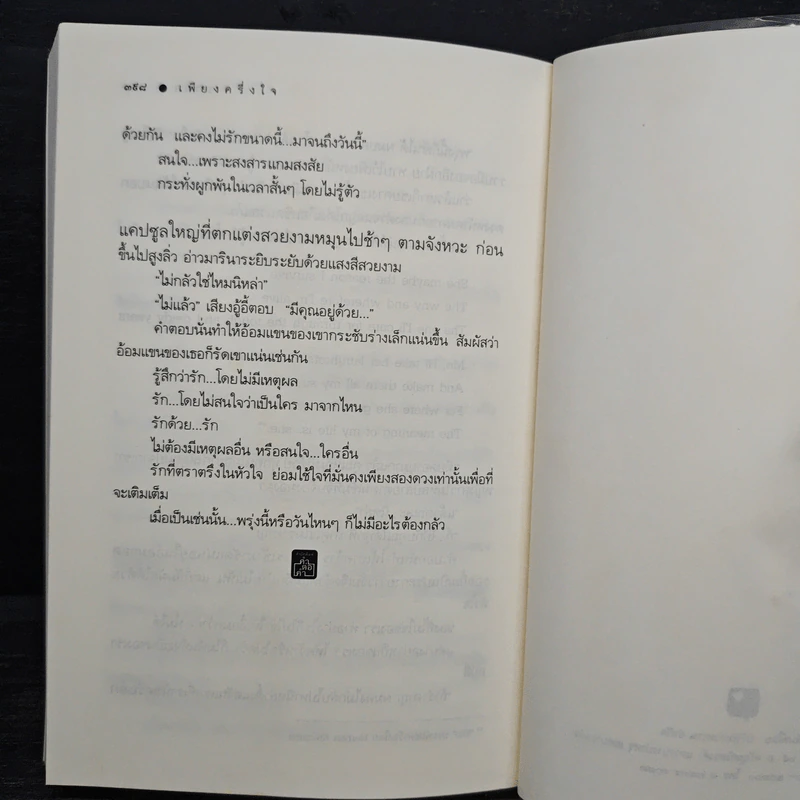 ๓๙๘ ● เพียงครึ่งใจ
ด้วยกัน และคงไม่รักขนาดนี้...มาจนถึงวันนี้”
สนใจ...เพราะสงสารแกมสงสัย
กระทั่งผูกพันในเวลาสั้นๆ โดยไม่รู้ตัว
แคปซูลใหญ่ที่ตกแต่งสวยงามหมุนไปช้าๆ ตามจังหวะ ก่อน
ขึ้นไปสูงลิ่ว อ่าวมารินาระยิบระยับด้วยแสงสีสวยงาม
“ไม่กลัวใช่ไหมนิหล่า”
“ไม่แล้ว” เสียงอู้อี้ตอบ “มีคุณอยู่ด้วย...”
คำตอบนั่นทำให้อ้อมแขนของเขากระชับร่างเล็กแน่นขึ้น สัมผัสว่า
อ้อมแขนของเธอก็รัดเขาแน่นเช่นกัน
รู้สึกว่ารัก...โดยไม่มีเหตุผล
รัก...โดยไม่สนใจว่าเป็นใคร มาจากไหน
รักด้วย...รัก
ไม่ต้องมีเหตุผลอื่น หรือสนใจ...ใครอื่น
รักที่ตราตรึงในหัวใจ ย่อมใช้ใจที่มั่นคงเพียงสองดวงเท่านั้นเพื่อที่
จะเติมเต็ม
เมื่อเป็นเช่นนั้น...พรุ่งนี้หรือวันไหนๆ ก็ไม่มีอะไรต้องกลัว
คำ
ต่อ
คำ